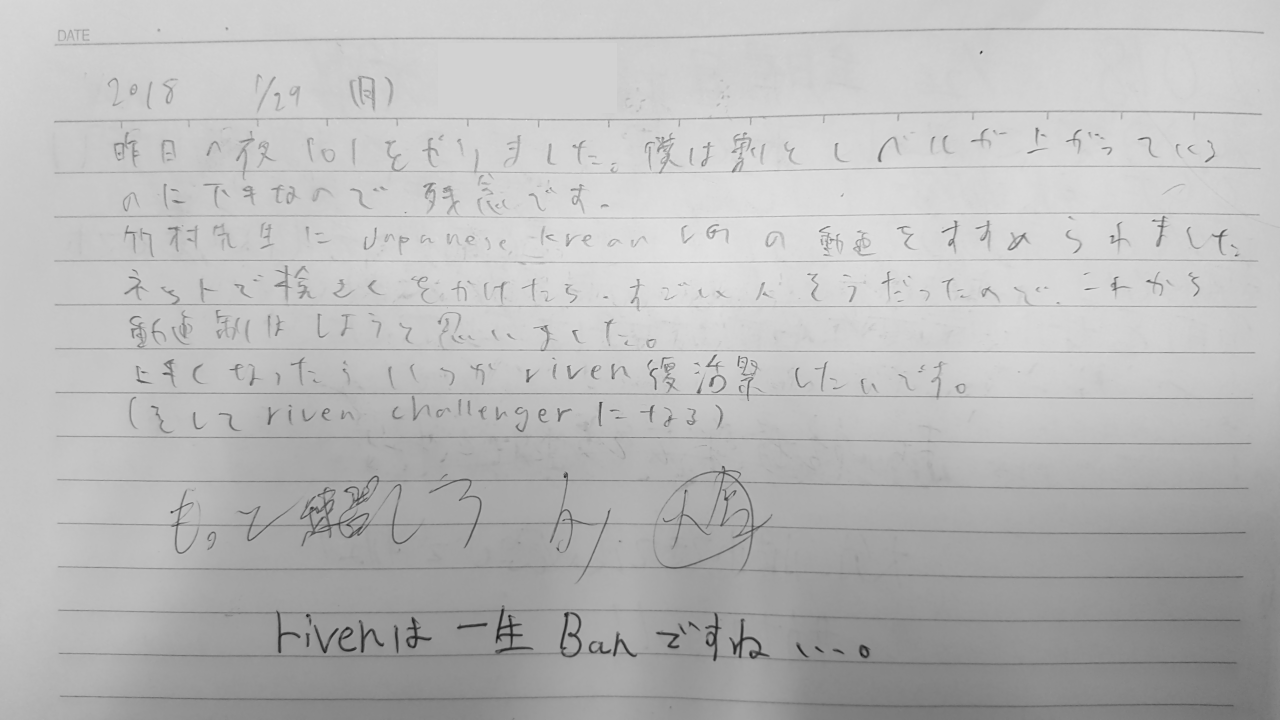 DATE
2018 1/29 (月)
昨日の夜 lolをやりました。僕は割とレベルが上がっている
のに下手なので、残念です。
竹村先生に Japanese Krean LGの動画をすすめられました。
ネットで検さくをかけたら、すごい人そうだったので、これから
動画制はしようと思いました。
上手くなったらいつか riven 復活祭したいです。
(そして riven challenger に なる)
もって練習しろ by
rivenは一生 Ban ですね…。